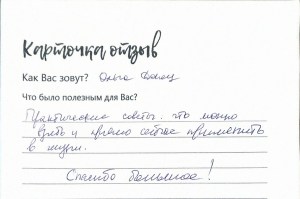 Карточка отзыв
Как Вас зовут? Ольга
Что было полезным для Вас?
Практические советы. что можно
взять и прямо сейчас применить
в жизни.
Спасибо большое!